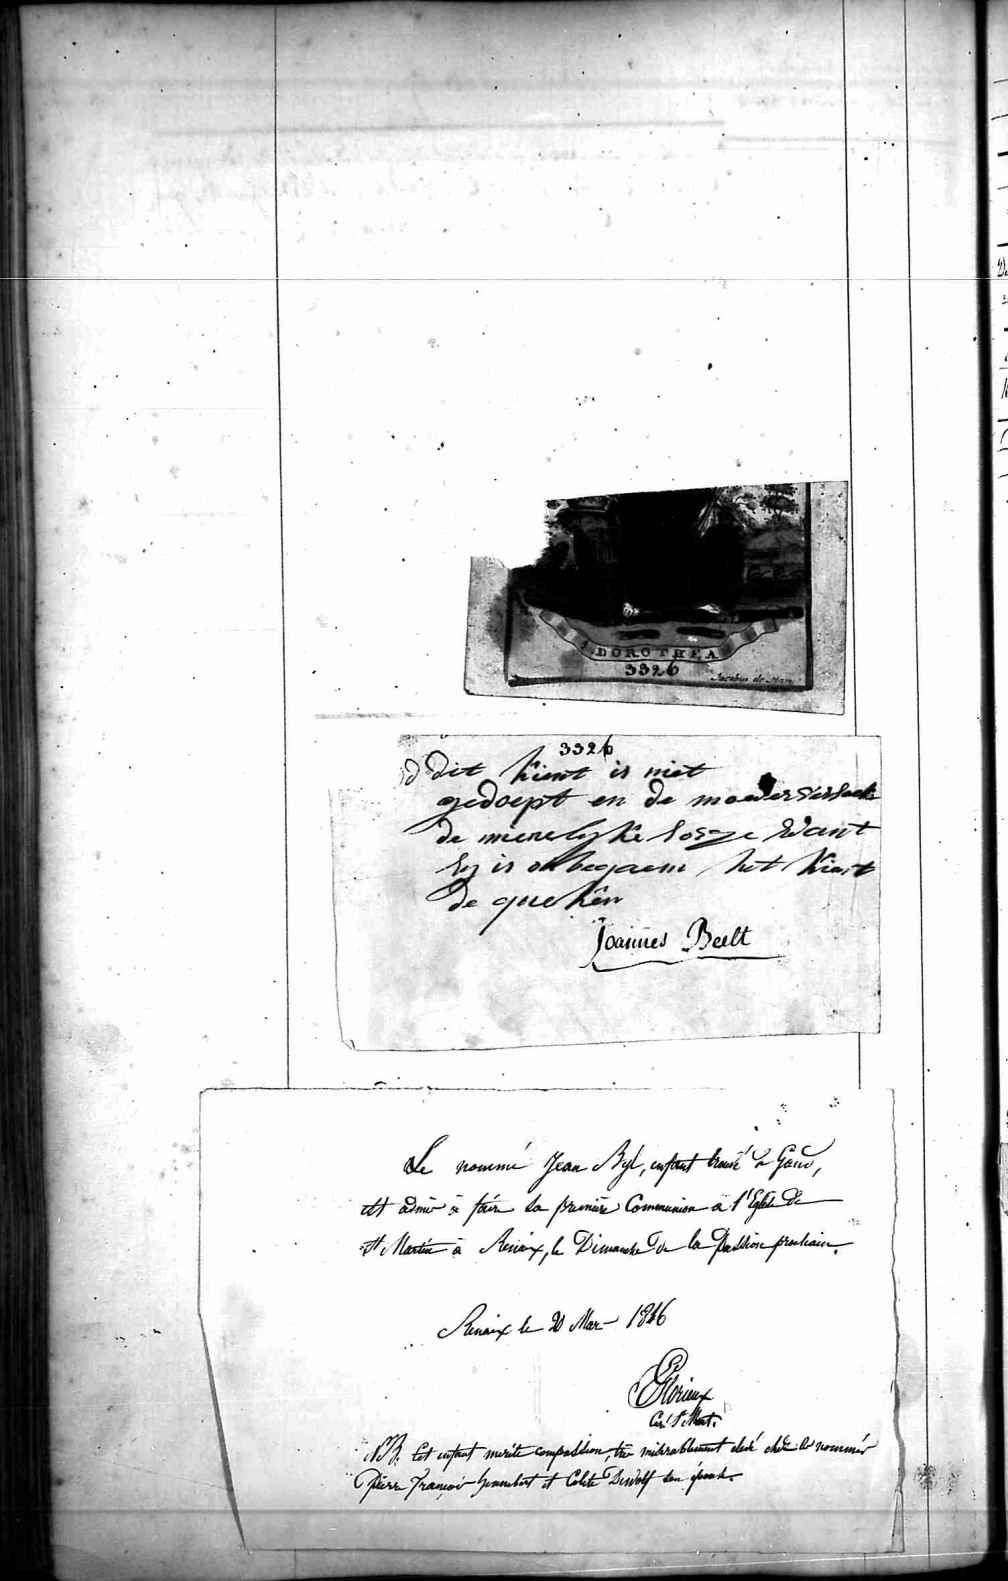 S. DOROTHEA
3326
Jacobus de Man
3326
dit kient is niet
gedoept en de moeder versoek
de menelyke sorge want
sy is onbegaem het kient
de queken
Joannes Beelt
Le nommé Jean Byl, enfant trouvé à Gand,
est admis à faire sa première Communion à l'Eglise de
St Martin à Renaix, le Dimanche de la Passion prochain.
Renaix le 20 Mars 1846
Glorieux
Curé St Mart.
NB. Cet enfant mérite compassion, très misérablement élevé chez les nommés
Pierre François Hennebert et Colete Dewolf son épouse.